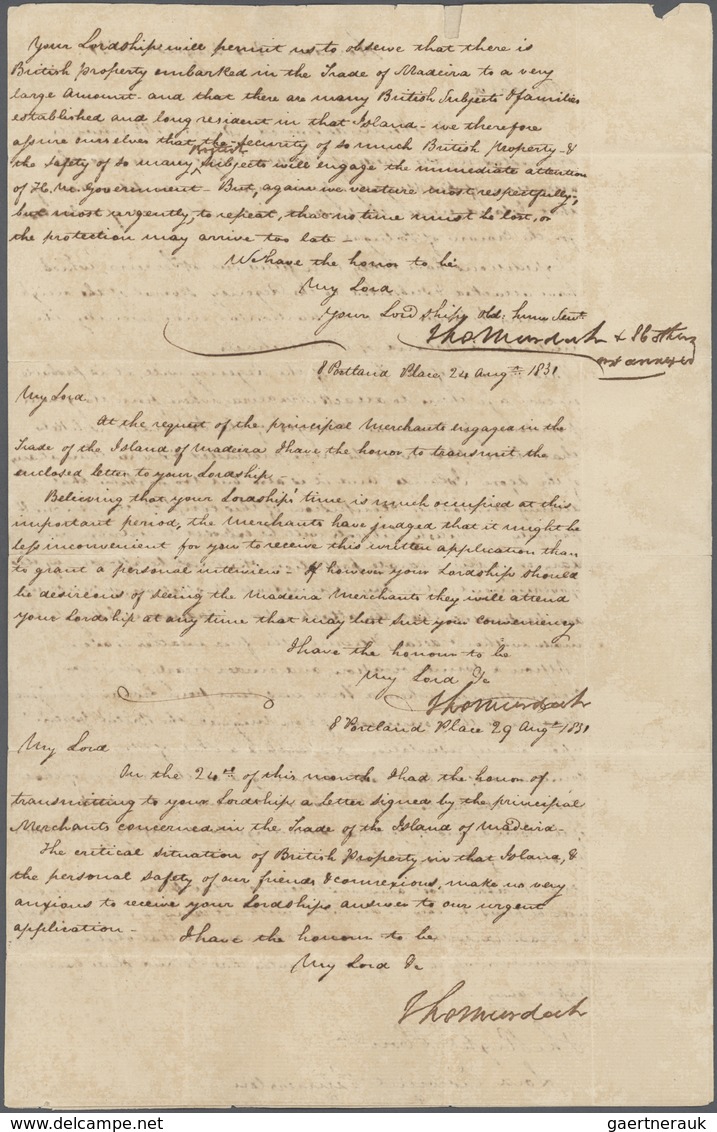 Your Lordship will permit us to observe that there is
British Property embarked in the Trade of Madeira to a very
large amount - and that there are many British Subjects & families
established and long resident in that Island - we therefore
assure ourselves that the security of so much British property - &
the safety of so many British Subjects will engage the immediate attention
of H. M. Government - But, again we venture most respectfully,
but most urgently, to repeat, that no time must be lost, or
the protection may arrive too late -
We have the honor to be
My Lord
Your Lordships obd: hum Servt.
Tho Murdoch & 86 others
as annexed
8 Portland Place 24 Augt. 1831
My Lord.
At the request of the principal Merchants engaged in the
Trade of the Island of Madeira I have the honor to transmit the
enclosed letter to your Lordship.
Believing that your Lordships' time is much occupied at this
important period, the Merchants have judged that it might be
less inconvenient for you to receive this written application than
to grant a personal interview - If however your Lordship should
be desireious of seeing the Madeira Merchants they will attend
your Lordship at any time that may best suit your conveniency
I have the honour to be
My Lord &c
Tho Murdoch
8 Portland Place 29 Augt. 1831
My Lord
On the 24th of this month I had the honor of
transmitting to your Lordship a letter signed by the principal
Merchants concerned in the Trade of the Island of Madeira -
The critical situation of British Property in that Island, &
the personal safety of our friends & connexions, make us very
anxious to receive your Lordships answer to our urgent
application -
I have the honour to be
My Lord &c
Tho Murdoch
gaertnerauk